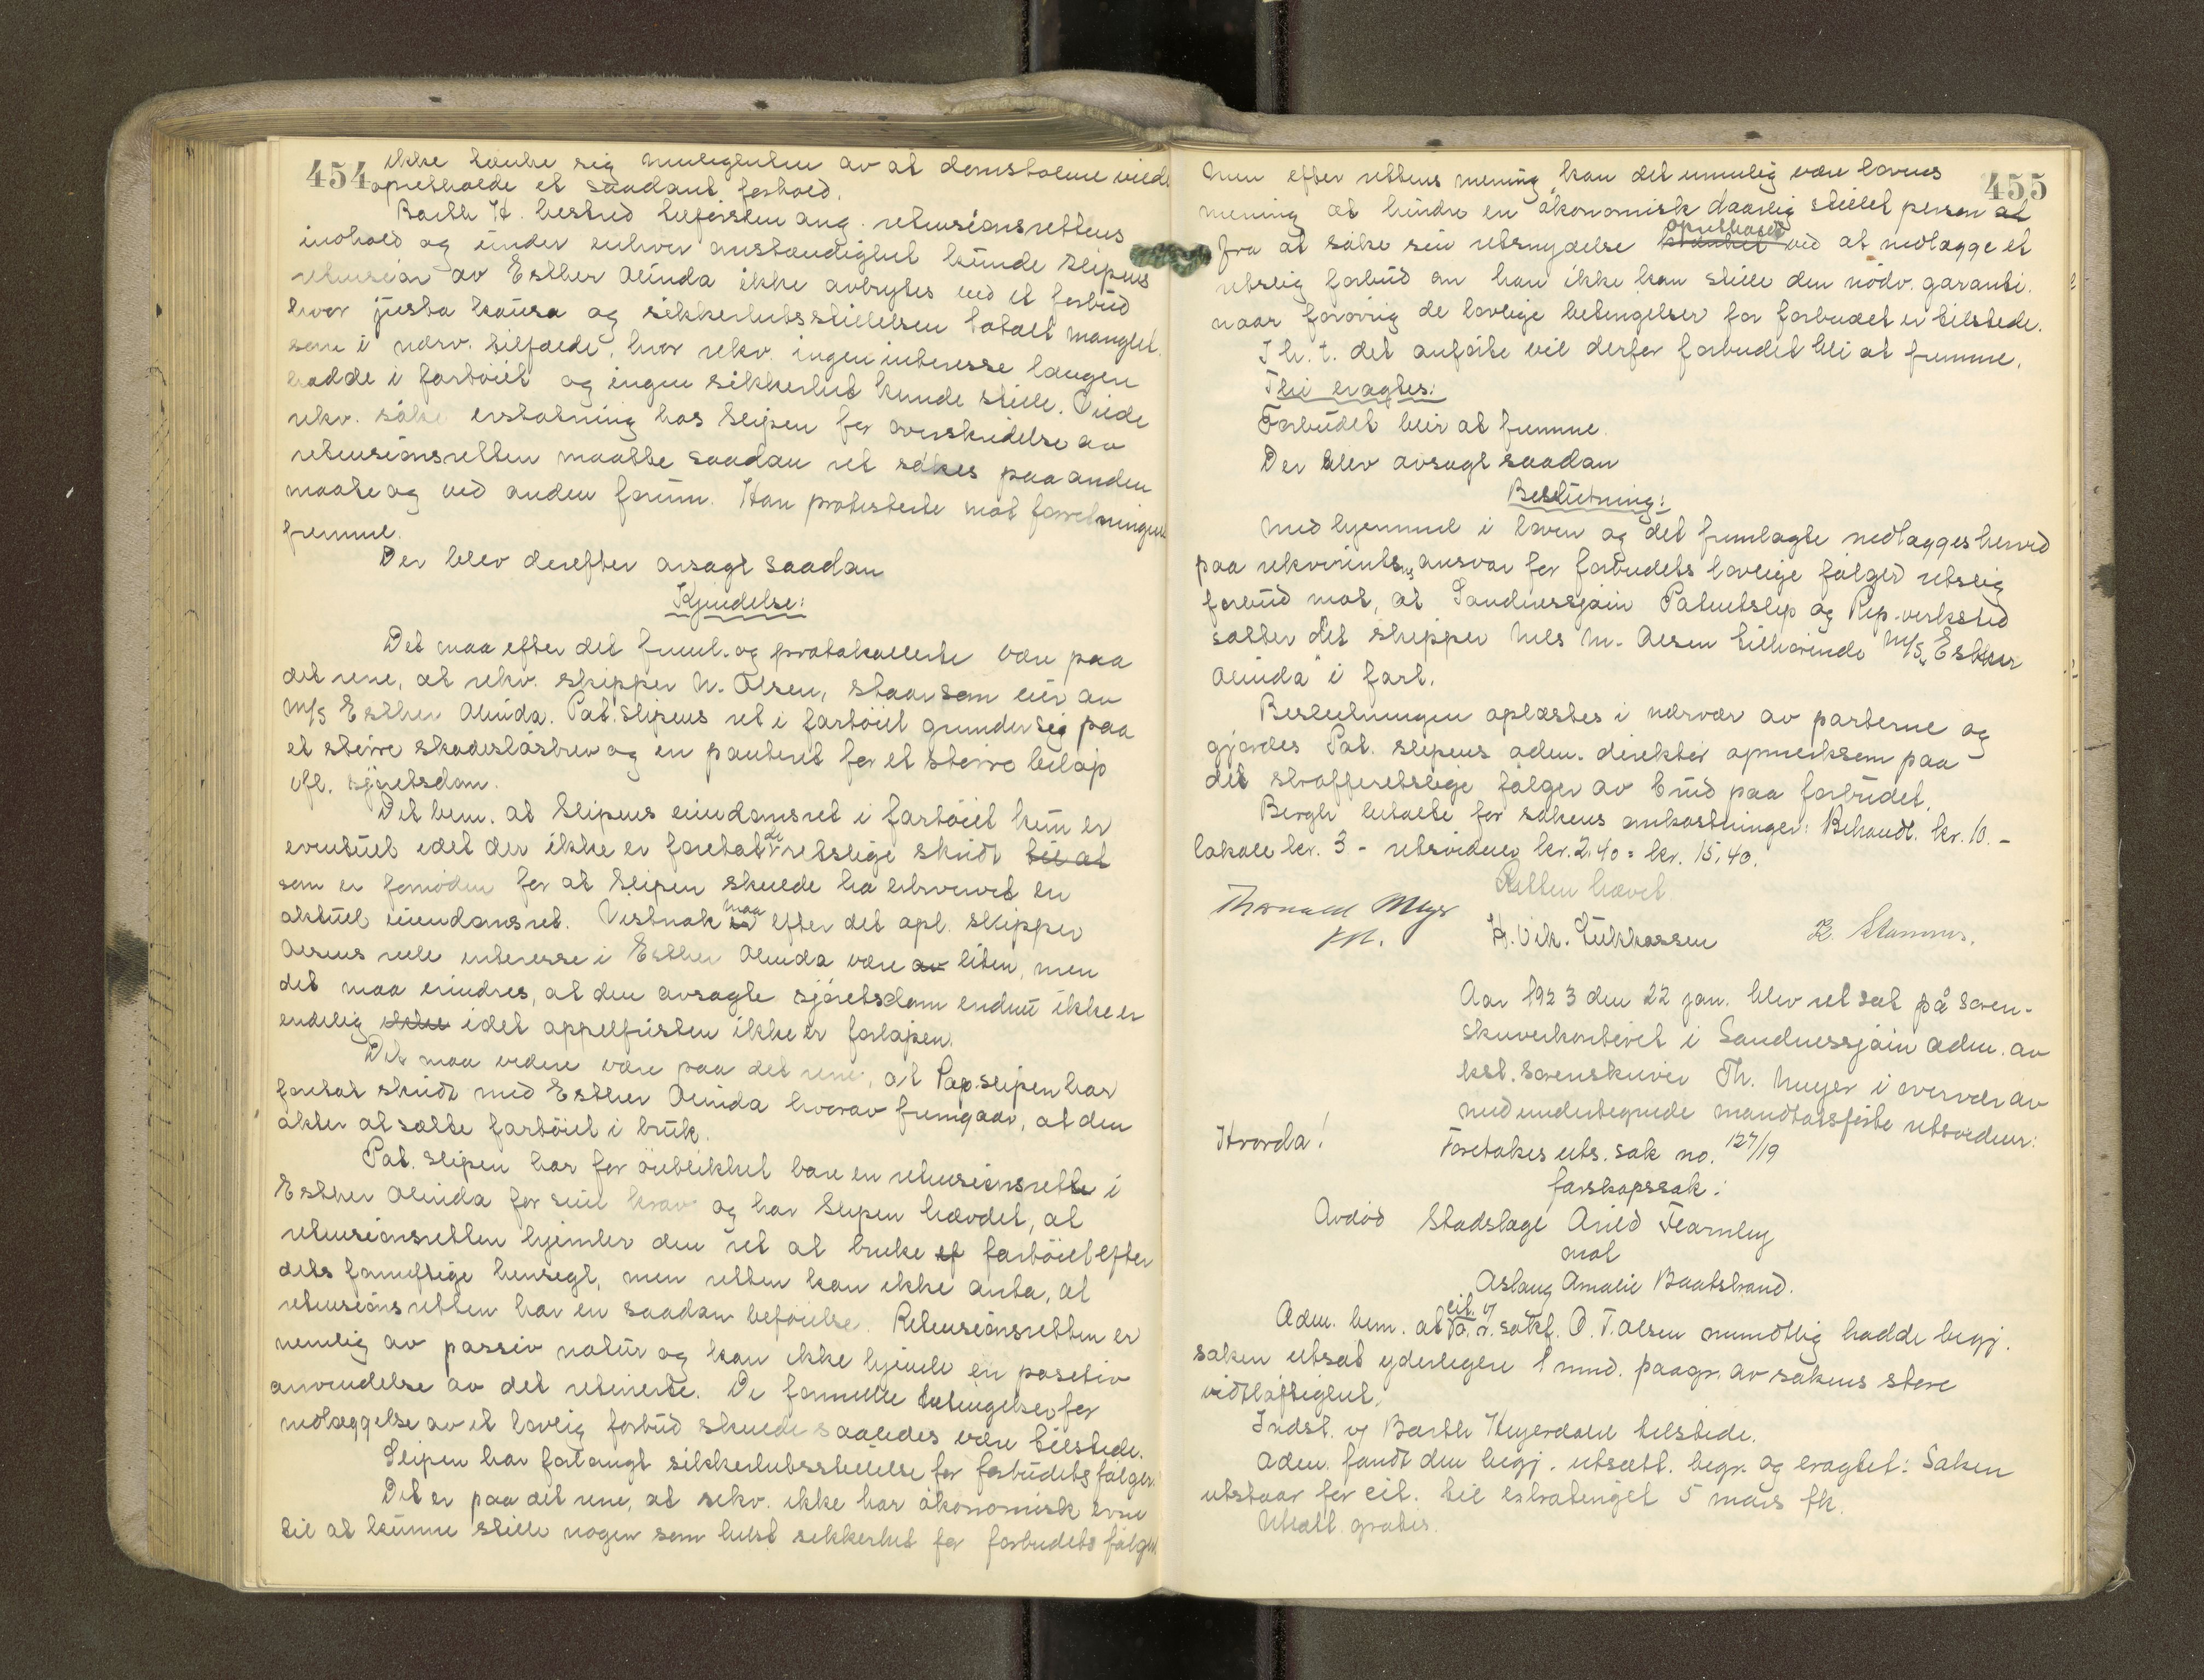 454
ikke tænke sig muligheten av at domstolene vilde
opretholde et saadant forhold.
Barth H. bestred tilførslen ang. retensionsrettens
indhold og under enhver omstændighet kunde Slipens
retension av Esther Alinda ikke avbrytes ved et forbud
hvor justa kausa og sikkerhetsstillelsen totalt manglet
som i nærv. tilfælde, hvor rekv. ingen interesse længer
hadde i fartøiet og ingen sikkerhet kunde stille. Vilde
rekv. søke erstatning hos Slipen for overskridelse av
retensionsretten maatte saadan ret søkes paa anden
maate og ved anden forum. Han protesterte mot forretningens
fremme.
Der blev derefter avsagt saadan
Kjendelse:
Det maa efter det freml. og protokollerte være paa
det rene, at rekv. skipper N. Olsen, staar som eier av
M/S Esther Alinda. Pat. Slipens ret i fartøiet grunder sig paa
et større skadesløsbrev og en panteret for et større beløp
ifl. sjøretsdom.
Det bem. at Slipens eiendomsret i fartøiet kun er
eventuel idet der ikke er foretat de retslige skridt til at
som er fornøden for at Slipen skulde ha erhvervet en
aktuel eiendomsret. Vistnok maa efter det opl. skipper
Olsens reele interesse i Esther Alinda være av liten, men
det maa erindres, at den avsagte sjøretsdom endnu ikke er
endelig ikke idet appelfristen ikke er forløpen.
Det maa videre være paa det rene, at Pap. slipen har
foretat skridt med Esther Alinda hvorav fremgaar, at den
akter at sætte fartøiet i bruk.
Pat. slipen har for øieblikket bare en retensionsrett i
Esther Alinda for sitt krav og har Slipen hævdet, at
retensionsretten hjemler den ret at bruke ef fartøiet efter
dets fornuftige hensegt, men retten kan ikke anta, at
retensionsretten har en saadan beføielse. Retensionsretten er
nemlig av passiv natur og kan ikke hjemle en positiv
anvendelse av det retinerte. De formelle betingelser for
nedlæggelse av et lovlig forbud skulde saaledes være tilstede.
Slipen har forlangt sikkerhetsstillelse for forbudets følger.
Det er paa det rene, at rekv. ikke har økonomisk evne
til at kunne stille nogen som helst sikkerhet for forbudets følger
455
Men efter rettens mening kan det umulig være lovens
mening at hindre en økonomisk daarlig stillet person at
fra at søke sin retsnydelse opretholdt ved at nedlægge et
retslig forbud om han ikke kan stille den nødv. garanti.
naar forøvrig de lovlige betingelser for forbudet er tilstede.
I h. t. det anførte vil derfor forbudet bli at fremme.
Thi eragtes:
Forbudet blir at fremme.
Der blev avsagt saadan
Beslutning:
Med hjemmel i loven og det fremlagte nedlægges herved
paa rekvirentens ansvar for forbudets lovlige følger retslig
forbud mot, at Sandnessjøen Patentslip og Rep. verksted
sætter det skipper Nels M. Olsen tilhørende M/S „Esther
Alinda" i fart.
Beslutningen oplæstes i nærvær av parterne og
gjordes Pat. slipens adm. direktør opmerksom paa
det strafferetslige følger av brud paa forbudet.
Bergh betalte for sakens omkostninger: Behandl. kr. 10.-
lokale kr. 3 - retsvidner kr. 2.40 = kr. 15,40.
Retten hævet
Thorvald Meyer
H. Vik. Tukkassen
K. Stamnes.
Aar 1923 den 22 jan. blev ret sat på soren-
skriverkontoret i Sandnessjøen adm. av
kst. sorenskriver Th. Meyer i overvær av
nedundertegnede mandtalsførte retsvidner:
Hvorda!
Foretokes uts. sak no. 127/19
farskapssak:
Avdød Stadslæge Arild Fearnley
mot
Aslaug Amalie Baatstrand.
Adm. bem. at cit. v/ o. r. sakf. O. T. Olsen mundtlig hadde begj.
saken utsat yderligere 1 mnd. paagr. av sakens store
vidtløftighet.
Indst. v/ Barth Heyerdahl tilstede.
Adm. fandt den begj. utsætt. begr. og eragtet: Saken
utstaar for cit. til extratinget 5 mars fk.
Utsætt. gratis.